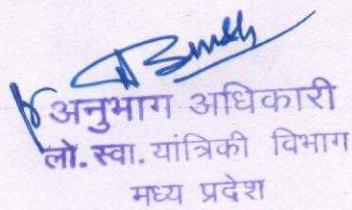 अनुभाग अधिकारी
लो.स्वा.यांत्रिकी विभाग
मध्य प्रदेश